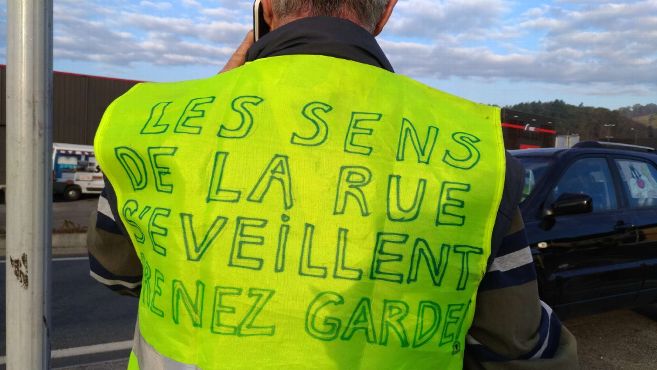 LES SENS
DE LA RUE
S'EVEiLLENT
PRENEZ GARDE!